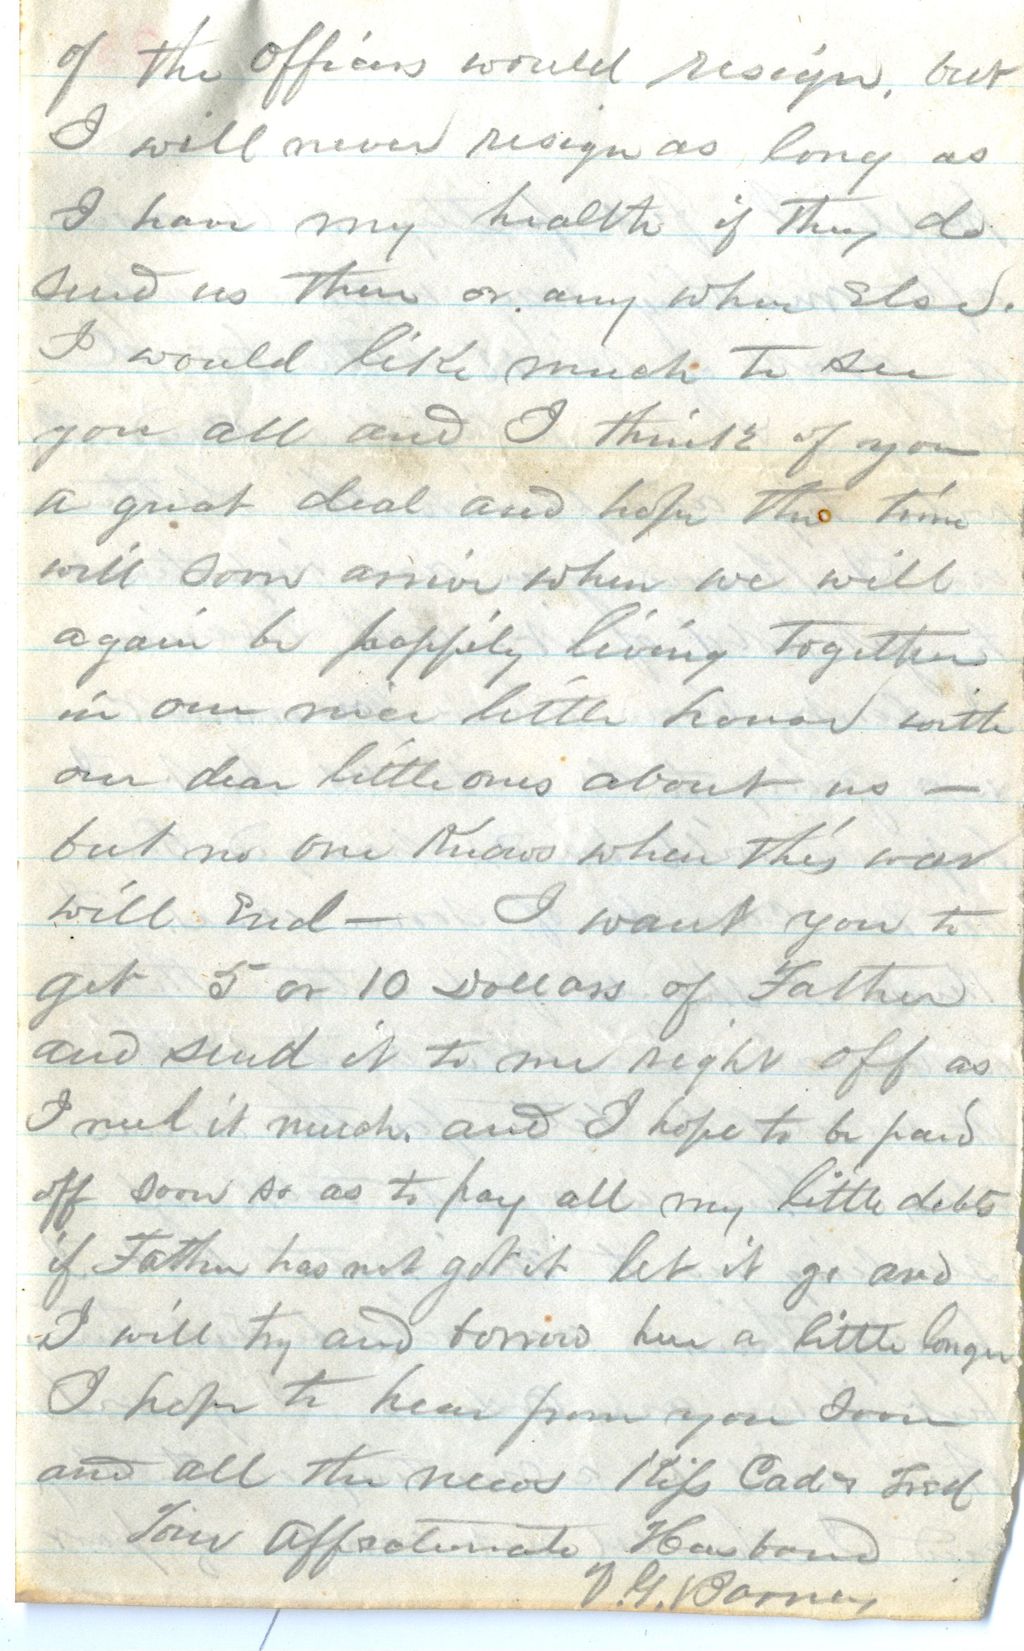 of the officers would resign, but
I will never resign as long as
I have my health if they do
send us there or any where Else.
I would like much to see
you all and I think of you
a great deal and hope the time
will soon arrive when we will
again be happily living together
in our nice little house with
our dear little ones about us —
but no one Knows when this war
will End — I want you to
get 5 or 10 Dollars of Father
and send it to me right off as
I need it much. and I hope to be paid
off soon so as to pay all my little debts
if Father has not got it let it go and
I will try and borrow here a little longer
I hope to hear from you soon
and all the news Kiss Cad & Fred
Your Affectionate Husband
V. G. Barney